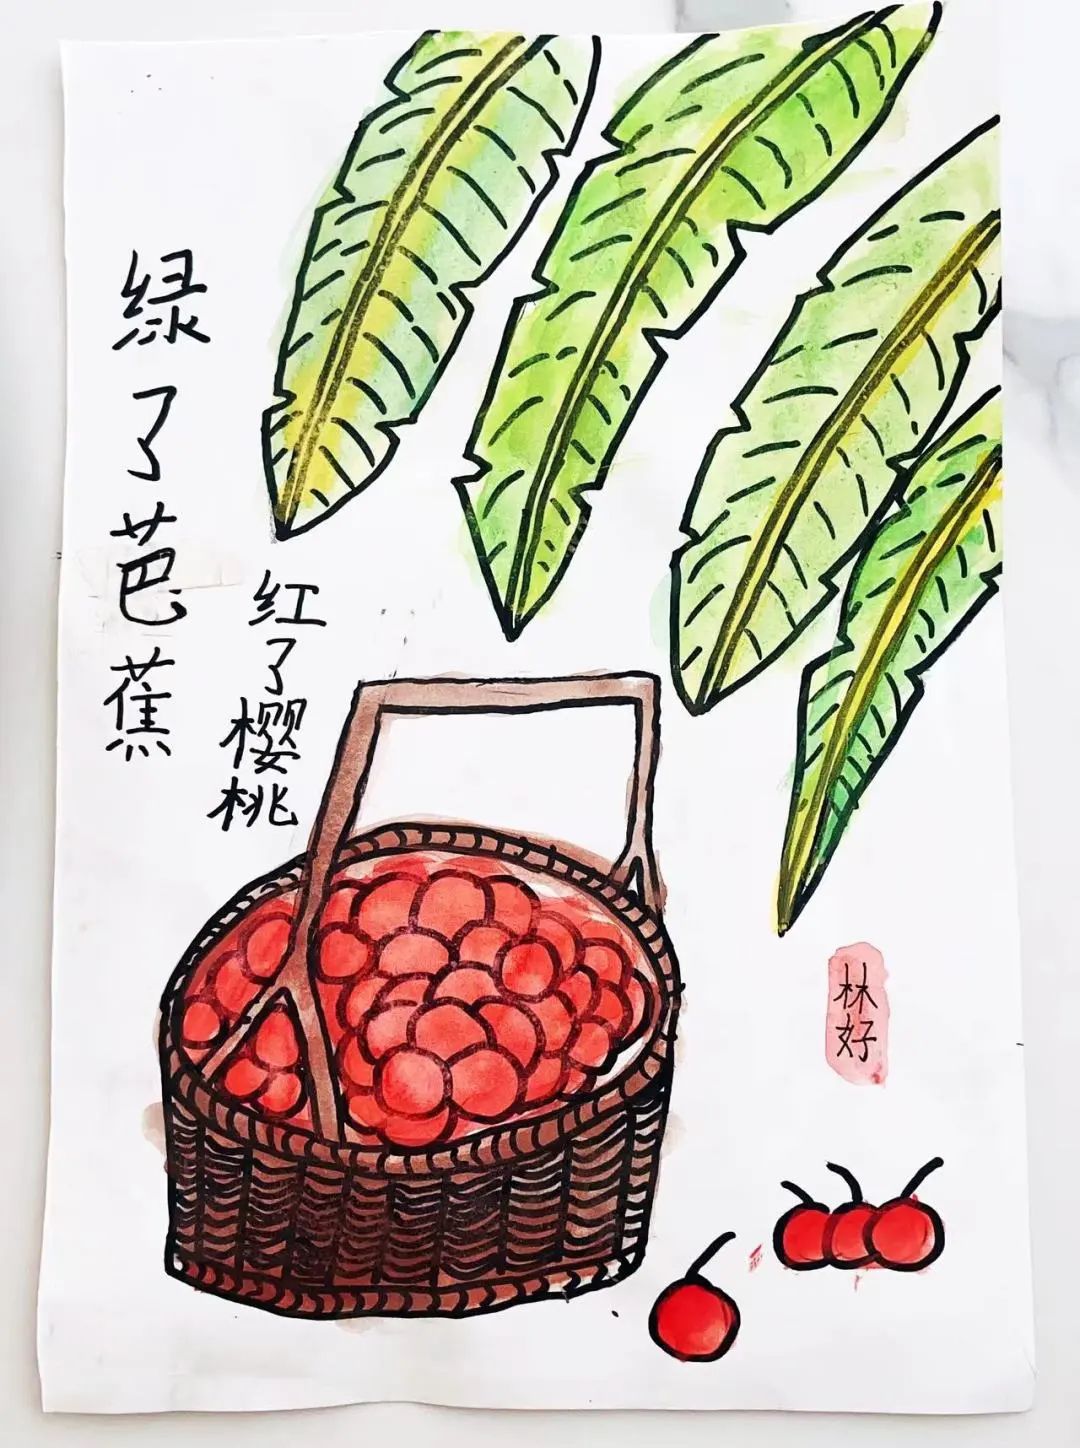 红了樱桃
绿了芭蕉
林好